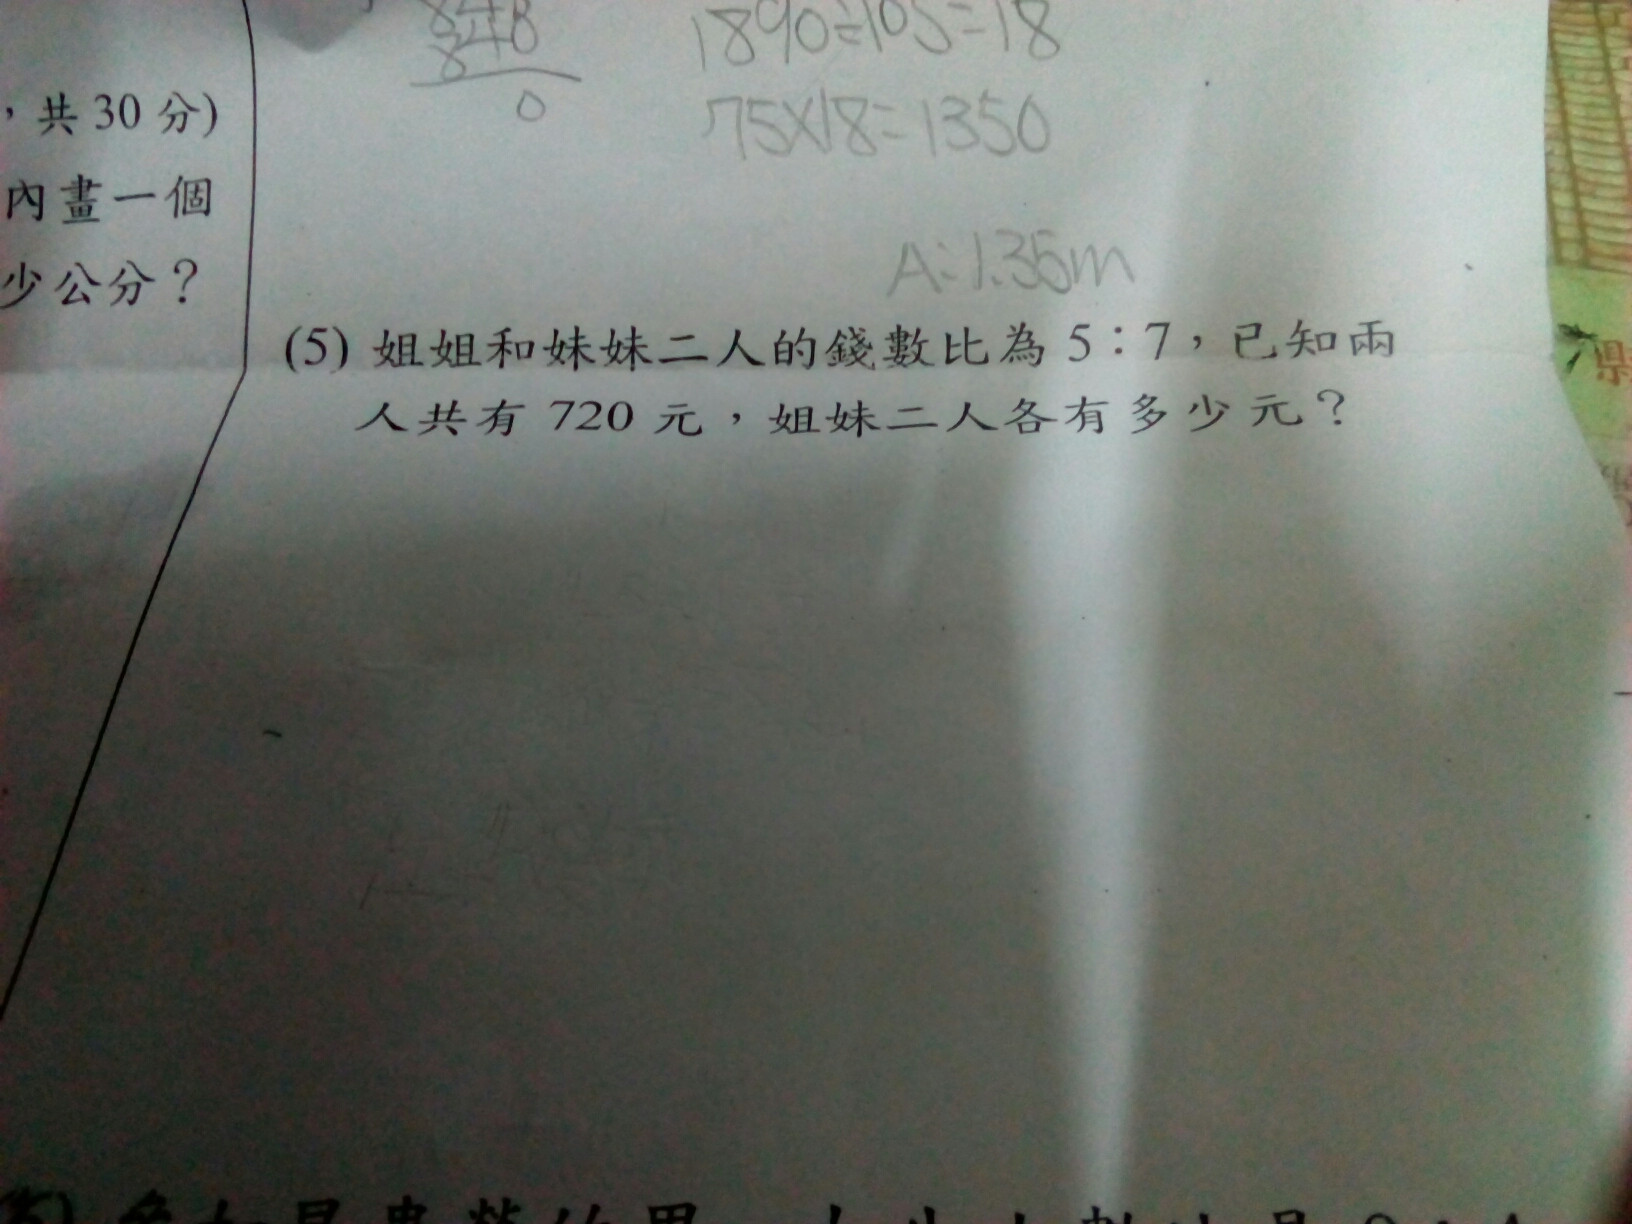 ，共 30 分)
內畫一個
少公分？
848
0
1890÷105=18
75×18=1350
A:1.35m
(5) 姐姐和妹妹二人的錢數比為 5：7，已知兩
人共有 720 元，姐妹二人各有多少元？